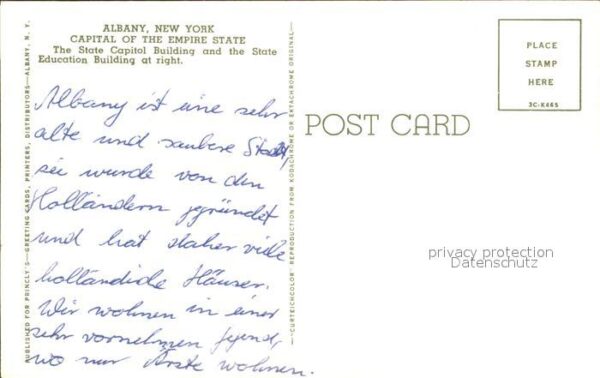 ALBANY, NEW YORK
CAPITAL OF THE EMPIRE STATE
The State Capitol Building and the State
Education Building at right.
Albany ist eine sehr
alte und saubere Stadt,
sei wurde von den
Holländern gegründet
und hat daher viele
holländide Häuser.
Wir wohnen in einer
sehr vornehmen Gegend,
wo nur Ärzte wohnen.
PUBLISHED FOR PRINCLY'S—GREETING CARDS, PRINTERS, DISTRIBUTORS—ALBANY, N. Y.
—CURTEICHCOLOR REPRODUCTION FROM KODACHROME OR EKTACHROME ORIGINAL—
POST CARD
PLACE
STAMP
HERE
3C-K465
privacy protection
Datenschutz